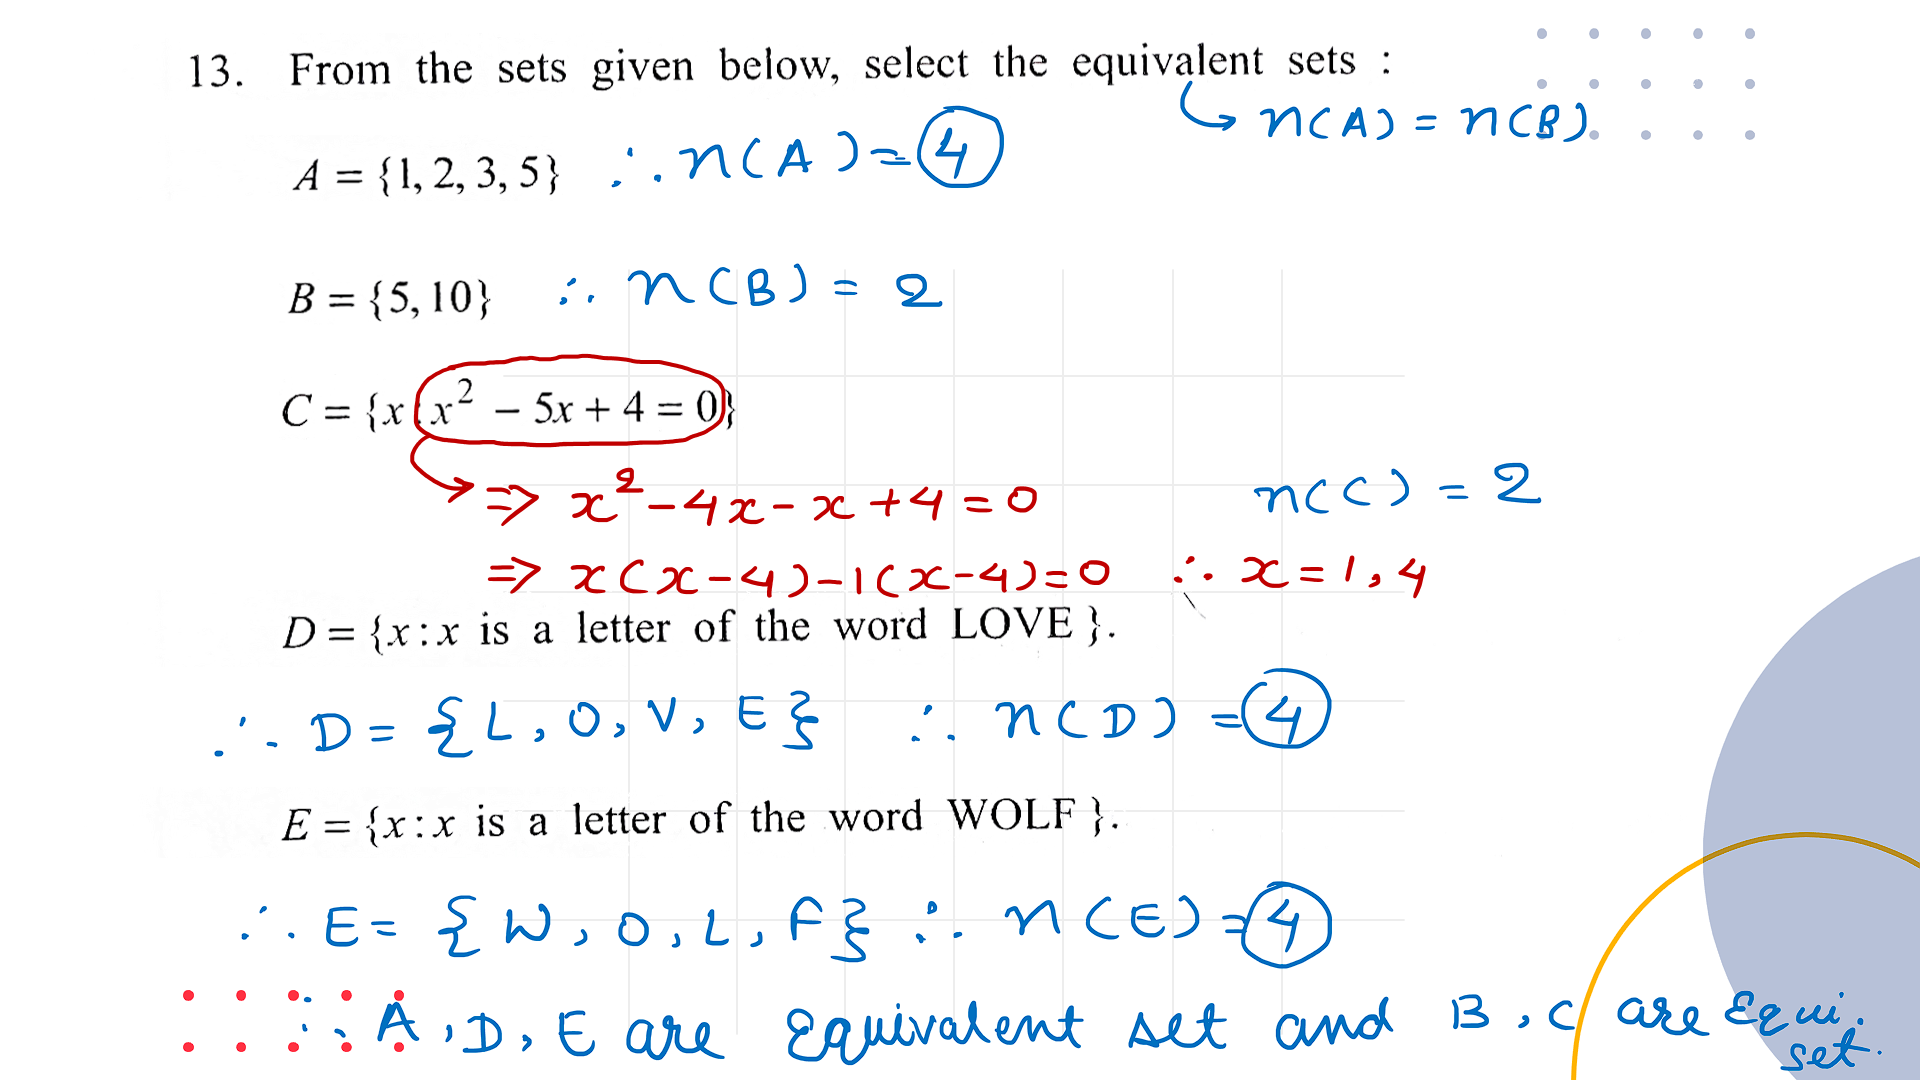 13. From the sets given below, select the equivalent sets :
→ n(A) = n(B).
A = {1, 2, 3, 5} ∴ n(A) = 4
B = {5, 10} ∴ n(B) = 2
C = {x : x² – 5x + 4 = 0}
⇒ x² - 4x - x + 4 = 0 n(C) = 2
⇒ x(x-4) - 1(x-4) = 0 ∴ x = 1, 4
D = {x : x is a letter of the word LOVE }.
∴ D = {L, O, V, E} ∴ n(D) = 4
E = {x : x is a letter of the word WOLF }.
∴ E = {W, O, L, F} ∴ n(E) = 4
∴ A, D, E are Equivalent set and B, C are Equi. set.